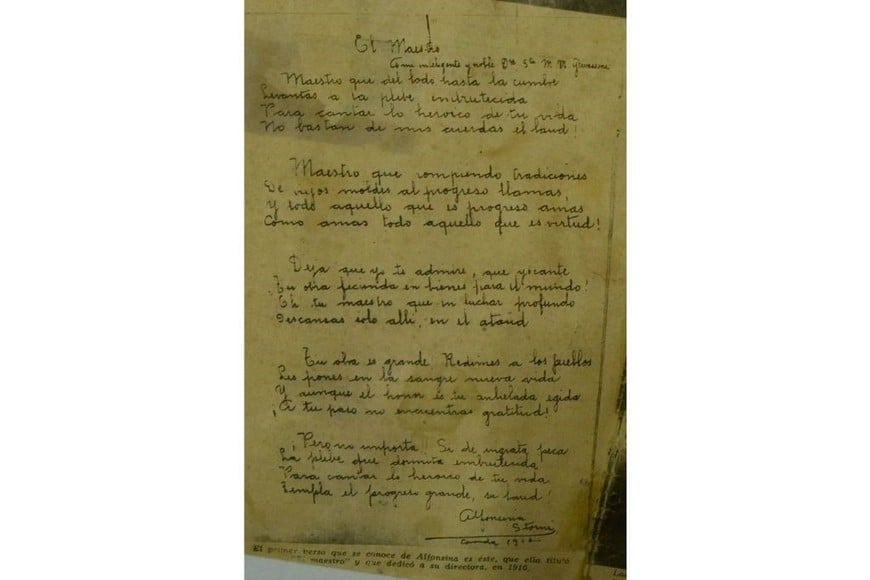 El Maestro
A mi inteligente y noble
Maestro que del lodo hasta la cumbre
Levantas a la plebe embrutecida
Para cantar lo heroico de tu vida
No bastan de mis cuerdas el laud!
Maestro que rompiendo tradiciones
De viejos moldes al progreso llamas,
Y todo aquello que es progreso amas
Como amas todo aquello que es virtud!
Deja que yo te admire, que yo cante
Tu obra fecunda en bienes para el mundo!
Oh tu maestro que en luchar profundo
Descansas solo allí, en el ataud
Tu obra es grande Redimes a los pueblos
Les pones en la sangre nueva vida
Y aunque el honor es tu anhelada egida
¡A tu paso no encuentras gratitud!
¡Pero no importa!! Si de ingrata peca
La plebe que dormita embrutecida
Para cantar lo heroico de tu vida
Templa el progreso grande, su laud!
Alfonsina
Storni
Coronda 1910
El primer verso que se conoce de Alfonsina es éste, que ella tituló
"El maestro" y que dedicó a su directora, en 1910.